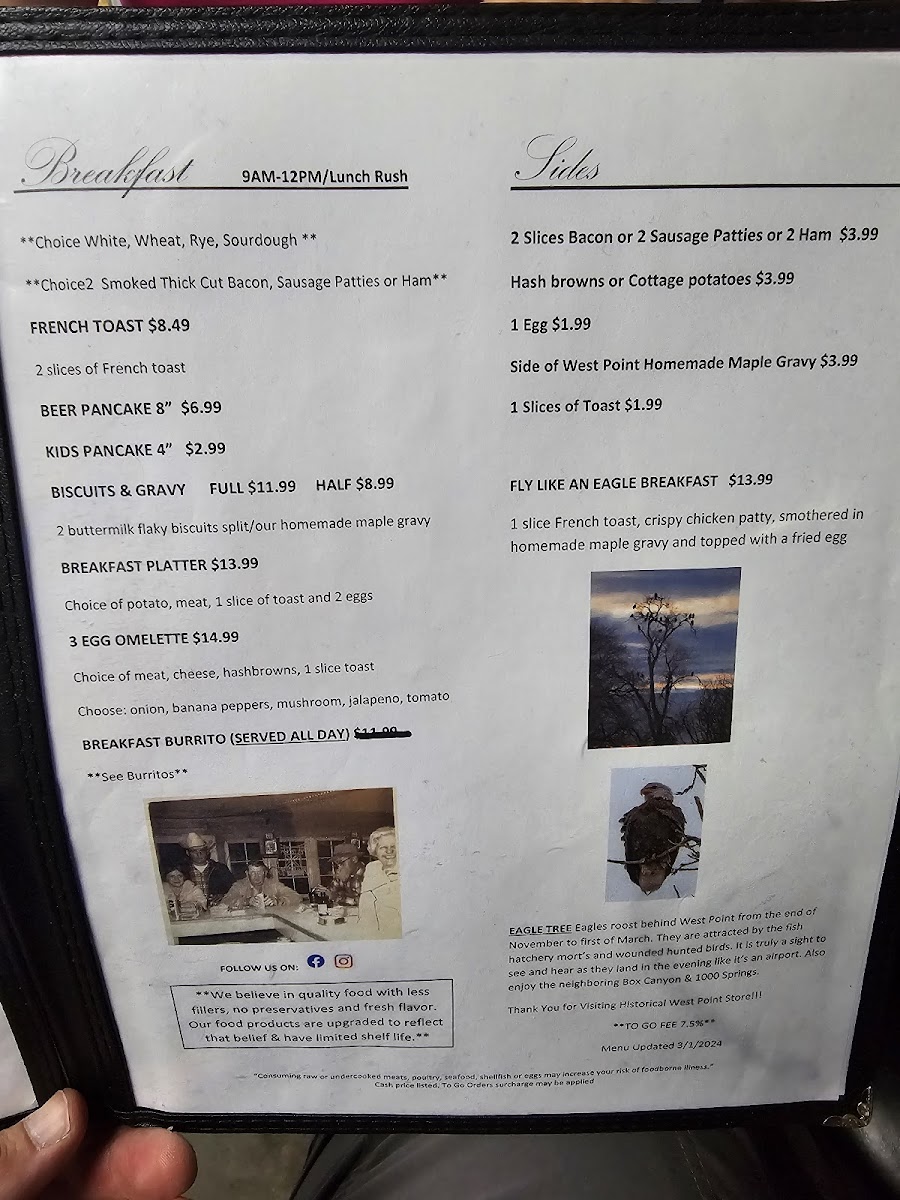 Breakfast 9AM-12PM/Lunch Rush
**Choice White, Wheat, Rye, Sourdough **
**Choice2 Smoked Thick Cut Bacon, Sausage Patties or Ham**
FRENCH TOAST $8.49
2 slices of French toast
BEER PANCAKE 8” $6.99
KIDS PANCAKE 4” $2.99
BISCUITS & GRAVY FULL $11.99 HALF $8.99
2 buttermilk flaky biscuits split/our homemade maple gravy
BREAKFAST PLATTER $13.99
Choice of potato, meat, 1 slice of toast and 2 eggs
3 EGG OMELETTE $14.99
Choice of meat, cheese, hashbrowns, 1 slice toast
Choose: onion, banana peppers, mushroom, jalapeno, tomato
BREAKFAST BURRITO (SERVED ALL DAY) $11.99
**See Burritos**
FOLLOW US ON:
**We believe in quality food with less
fillers, no preservatives and fresh flavor.
Our food products are upgraded to reflect
that belief & have limited shelf life.**
Sides
2 Slices Bacon or 2 Sausage Patties or 2 Ham $3.99
Hash browns or Cottage potatoes $3.99
1 Egg $1.99
Side of West Point Homemade Maple Gravy $3.99
1 Slices of Toast $1.99
FLY LIKE AN EAGLE BREAKFAST $13.99
1 slice French toast, crispy chicken patty, smothered in
homemade maple gravy and topped with a fried egg
EAGLE TREE Eagles roost behind West Point from the end of
November to first of March. They are attracted by the fish
hatchery mort's and wounded hunted birds. It is truly a sight to
see and hear as they land in the evening like it's an airport. Also
enjoy the neighboring Box Canyon & 1000 Springs.
Thank You for Visiting Historical West Point Store!!!
**TO GO FEE 7.5%**
Menu Updated 3/1/2024
"Consuming raw or undercooked meats, poultry, seafood, shellfish or eggs may increase your risk of foodborne illness."
Cash price listed, To Go Orders surcharge may be applied